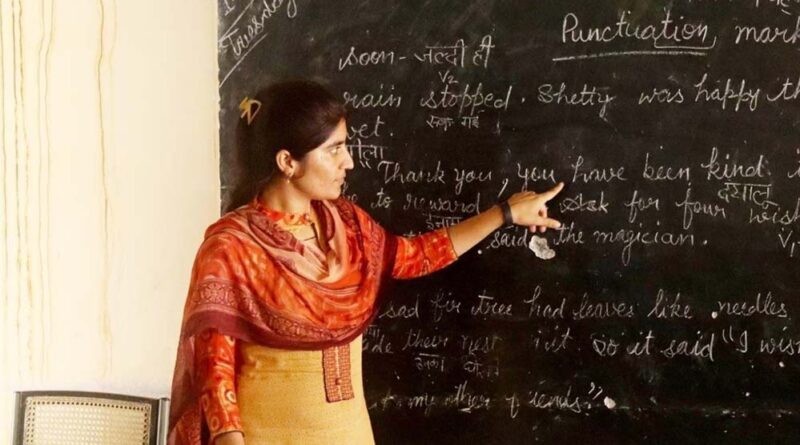 Tuesday
Punctuation mark
soon - जल्दी ही
V2
rain stopped. Shetty was happy th
रुक गई
wet.
गीला
"Thank you, you have been kind.
दयालु
e to reward ask for four wish
ईनाम
said the magician.
V1
sad fir tree had leaves like needles
de their nest in it. So it said "I wis
to my other friends".